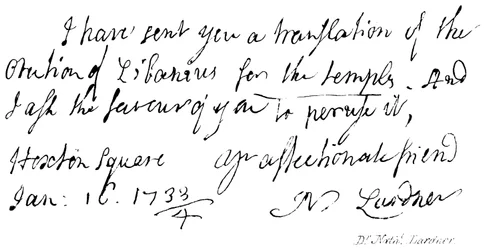 I have sent you a translation of the
Oration of Libanius for the temples. And
I ask the favour of you to peruse it,
Hoxton Square yr affectionate friend
Jan: 16. 1733/4 N Lardner
Dr. Nathl. Lardner